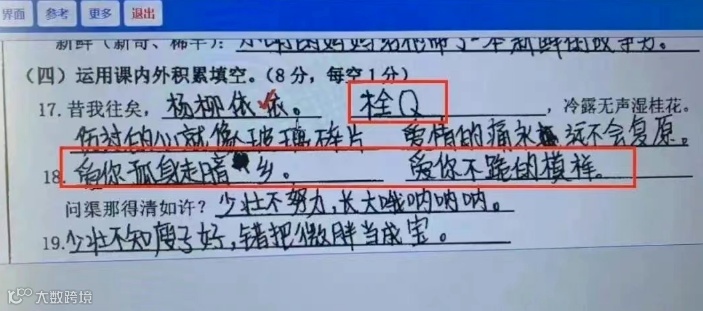 界面 参考 更多 退出
新鲜（新奇、稀罕）：
（四）运用课内外积累填空。（8分，每空1分）
17. 昔我往矣，杨柳依依。 栓Q ，冷露无声湿桂花。
伤过的心就像玻璃碎片 爱情的痛永远不会复原。
18. 爱你孤身走暗乡。 爱你不跪的模样。
问渠那得清如许？少壮不努力，长大哦呐呐呐。
19. 少壮不知瘦子好，错把微胖当成宝。
大数跨境